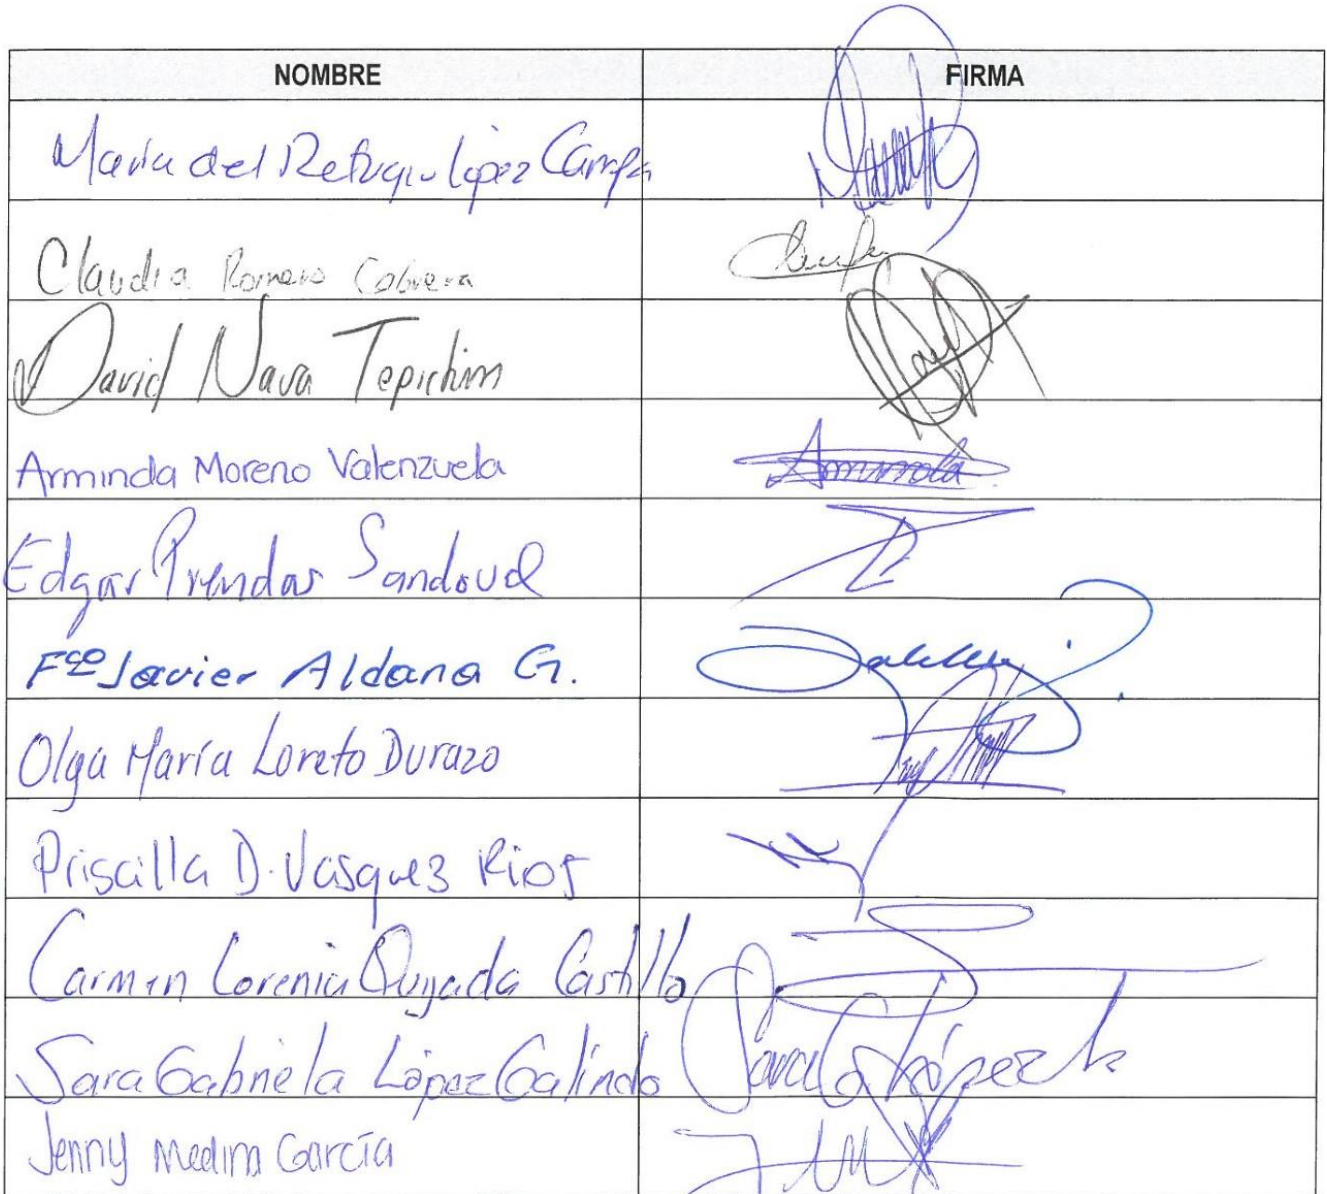 NOMBRE FIRMA
María del Refugio López Campa
Claudia Romero Cabrera
David Nava Tepichin
Arminda Moreno Valenzuela Arminda
Edgar Prendas Sandoval
Fco Javier Aldana G.
Olga María Loreto Durazo
Priscilla D. Vasquez Rios
Carmen Lorenia Quijada Castillo
Sara Gabriela López Galindo Sara G López
Jenny Medina García